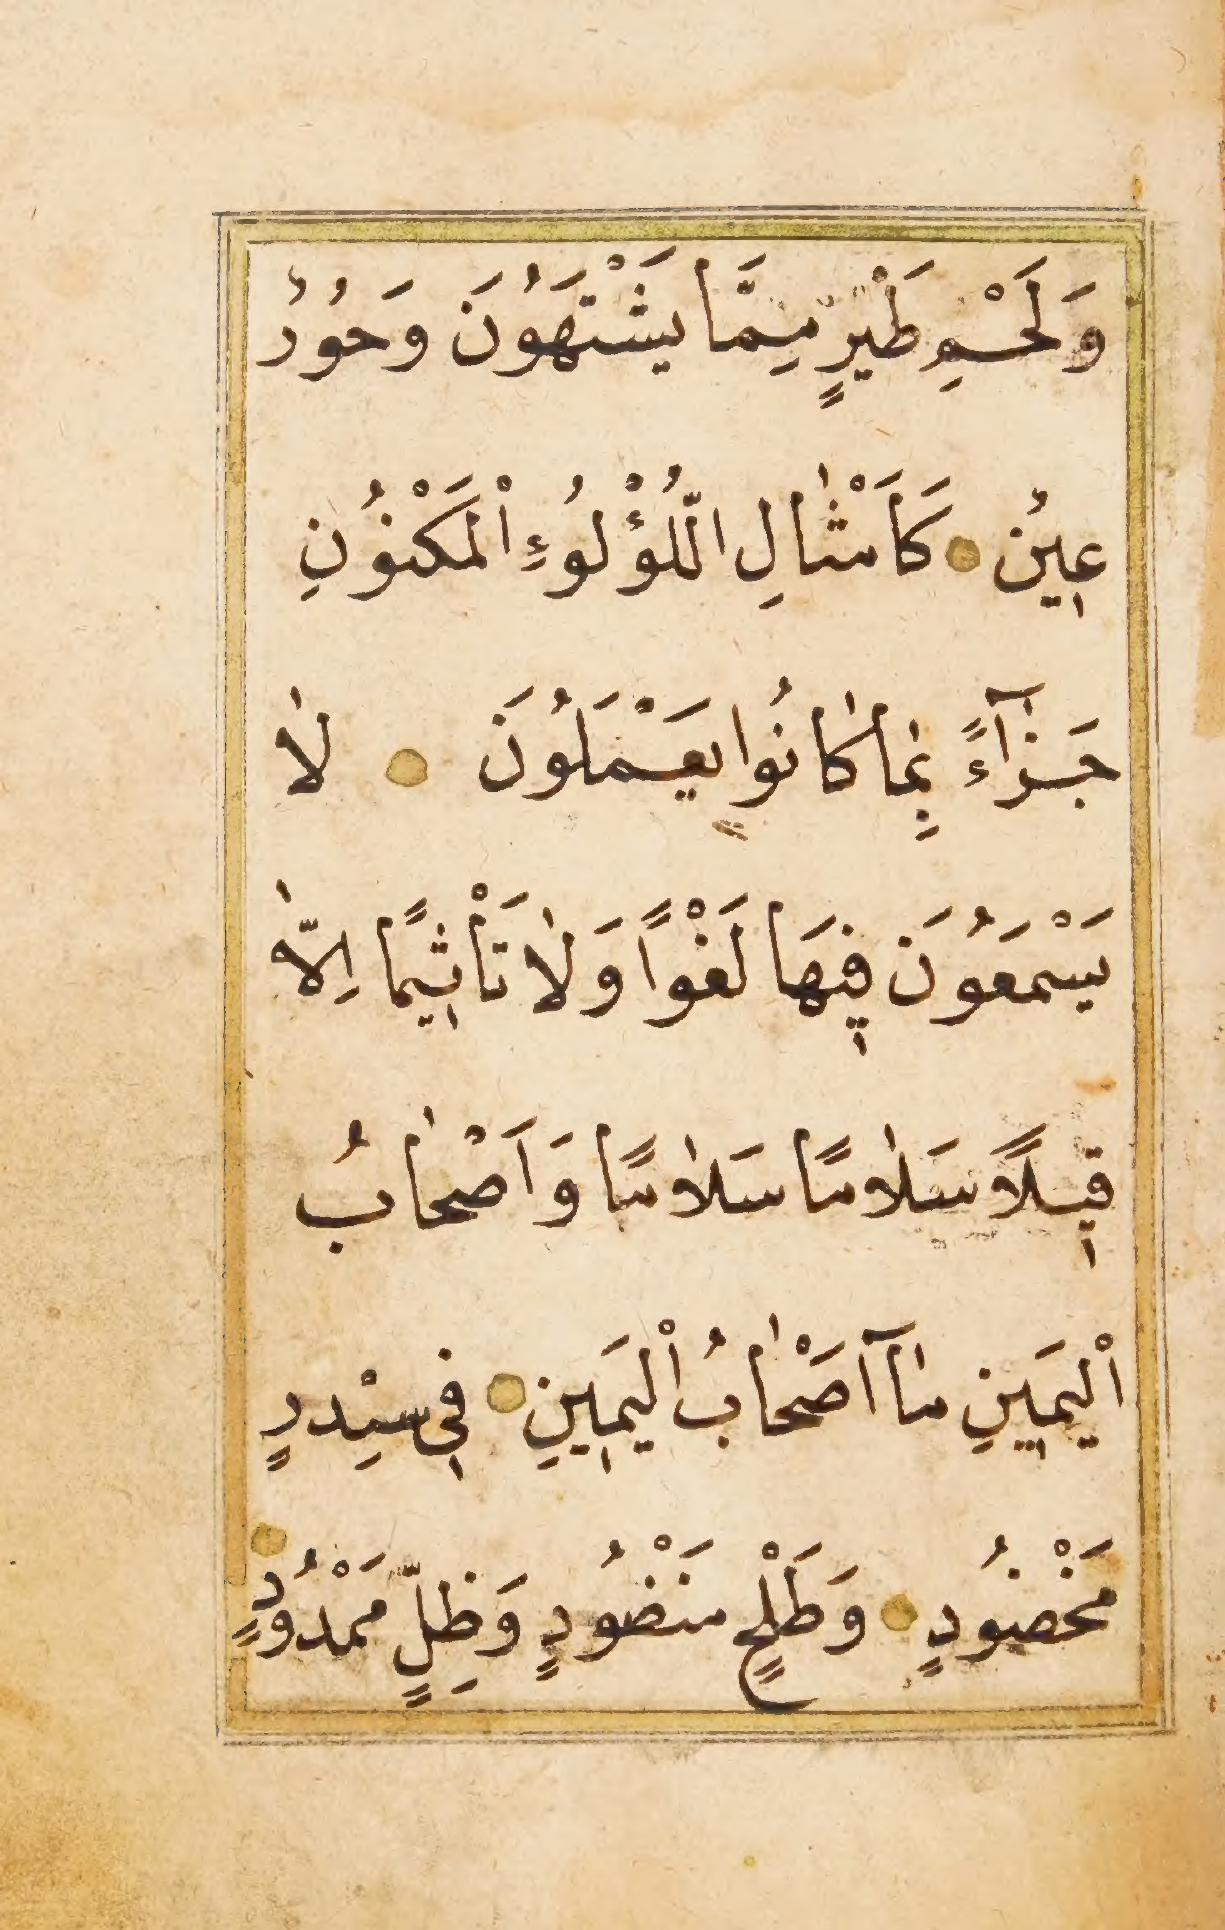 وَلَحْمِ طَيْرٍ مِمَّا يَشْتَهُونَ وَحُورٌ
عِينٌ كَاَمْثَالِ اللُّؤْلُوءِ الْمَكْنُونِ
جَزَآءً بِمَا كَانُوا يَعْمَلُونَ لَا
يَسْمَعُونَ فِيهَا لَغْوًا وَلَا تَأْثِيمًا اِلَّا
قِيلًا سَلَامًا سَلَامًا وَاَصْحَابُ
الْيَمِينِ مَآ اَصْحَابُ الْيَمِينِ فِي سِدْرٍ
مَخْضُودٍ وَطَلْحٍ مَنْضُودٍ وَظِلٍّ مَمْدُودٍ